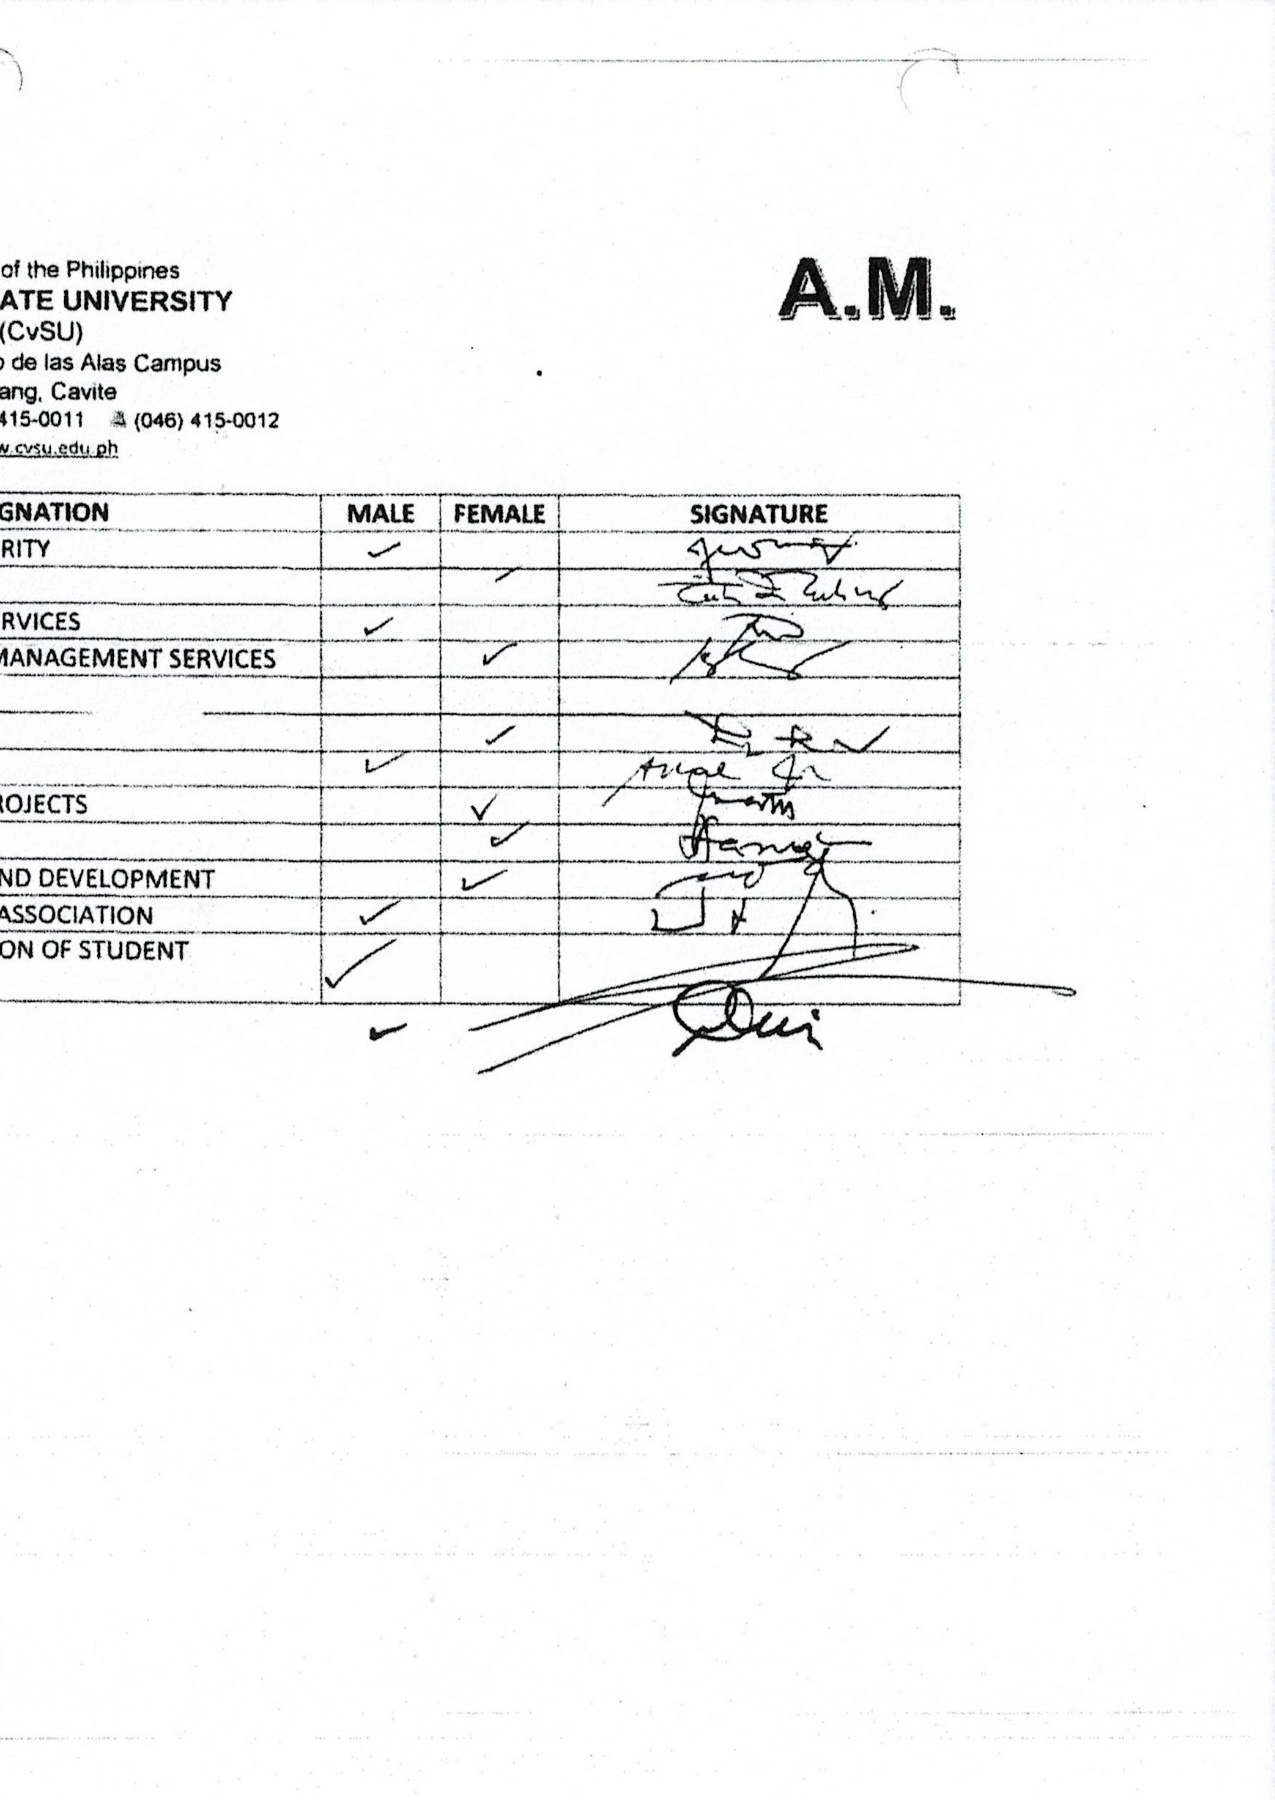 of the Philippines
A.M.
ATE UNIVERSITY
(CvSU)
o de las Alas Campus
ang, Cavite
415-0011 (046) 415-0012
w.cvsu.edu.ph
GNATION MALE FEMALE SIGNATURE
RITY ✓
✓
RVICES ✓
MANAGEMENT SERVICES ✓
✓
✓
ROJECTS ✓
✓
ND DEVELOPMENT ✓
ASSOCIATION ✓
ON OF STUDENT ✓
✓